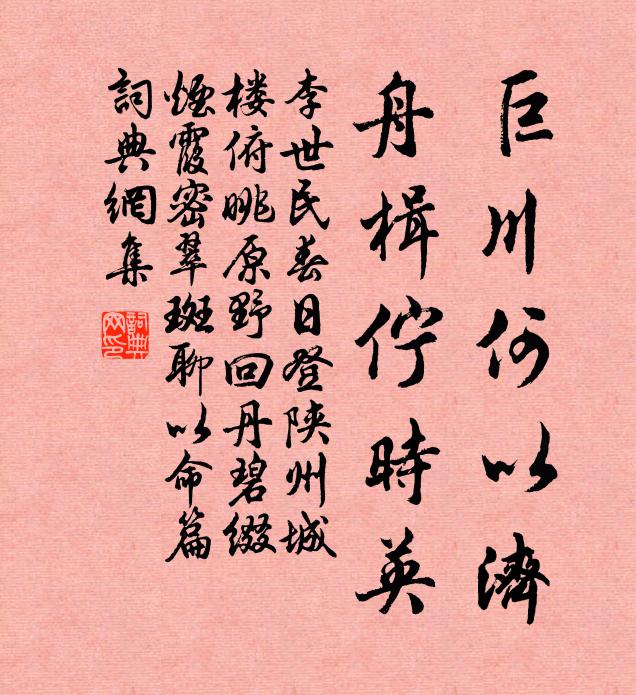 巨川何以濟
舟楫佇時英
李世民春日登陝州城
楼俯眺原野回丹碧缀
烟霞密翠斑聊以命篇
詞典網集
詞典
网印